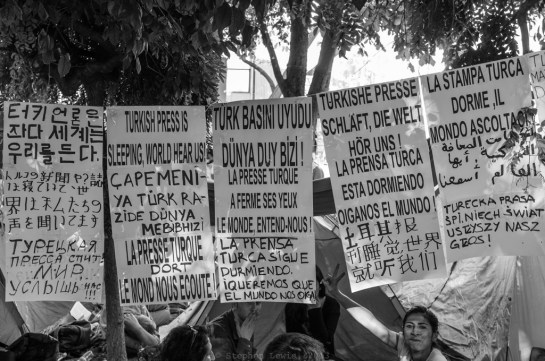 터키 언론은
자다 세계는
우리를 든다.
界は私たちの
声を聞いて
ТУРЕЦКАЯ
ПРЕССА СПИТ
МИР,
УСЛЫШЬ
TURKISH PRESS IS
SLEEPING, WORLD HEAR US
ÇAPEMENİ-
YA TÜRK RA-
ZIDE DÜNYA
MEBIBHIZI
LA PRESSE TURQUE
DORT
LE MOND NOUS ECOUTE
TÜRK BASINI UYUDU
DÜNYA DUY BİZİ !
LA PRESSE TURQUE
A FERME SES YEUX
LE MONDE, ENTEND-NOUS!
LA PRENSA
TURCA SIGUE
DURMIENDO.
¡QUEREMOS QUE
EL MUNDO NOS OIGA!
TURKISHE PRESSE
SCHLÄFT, DIE WELT
HÖR UNS !
LA PRENSA TURCA
ESTA DORMIENDO
OIGANOS EL MUNDO !
土耳其报
刊睡觉世界
就听我们
LA STAMPA TURCA
DORME ,IL
MONDO ASCOLTACI
TURECKA PRASA
ŚPI, NIECH ŚWIAT
USŁYSZY NASZ
GŁOS!